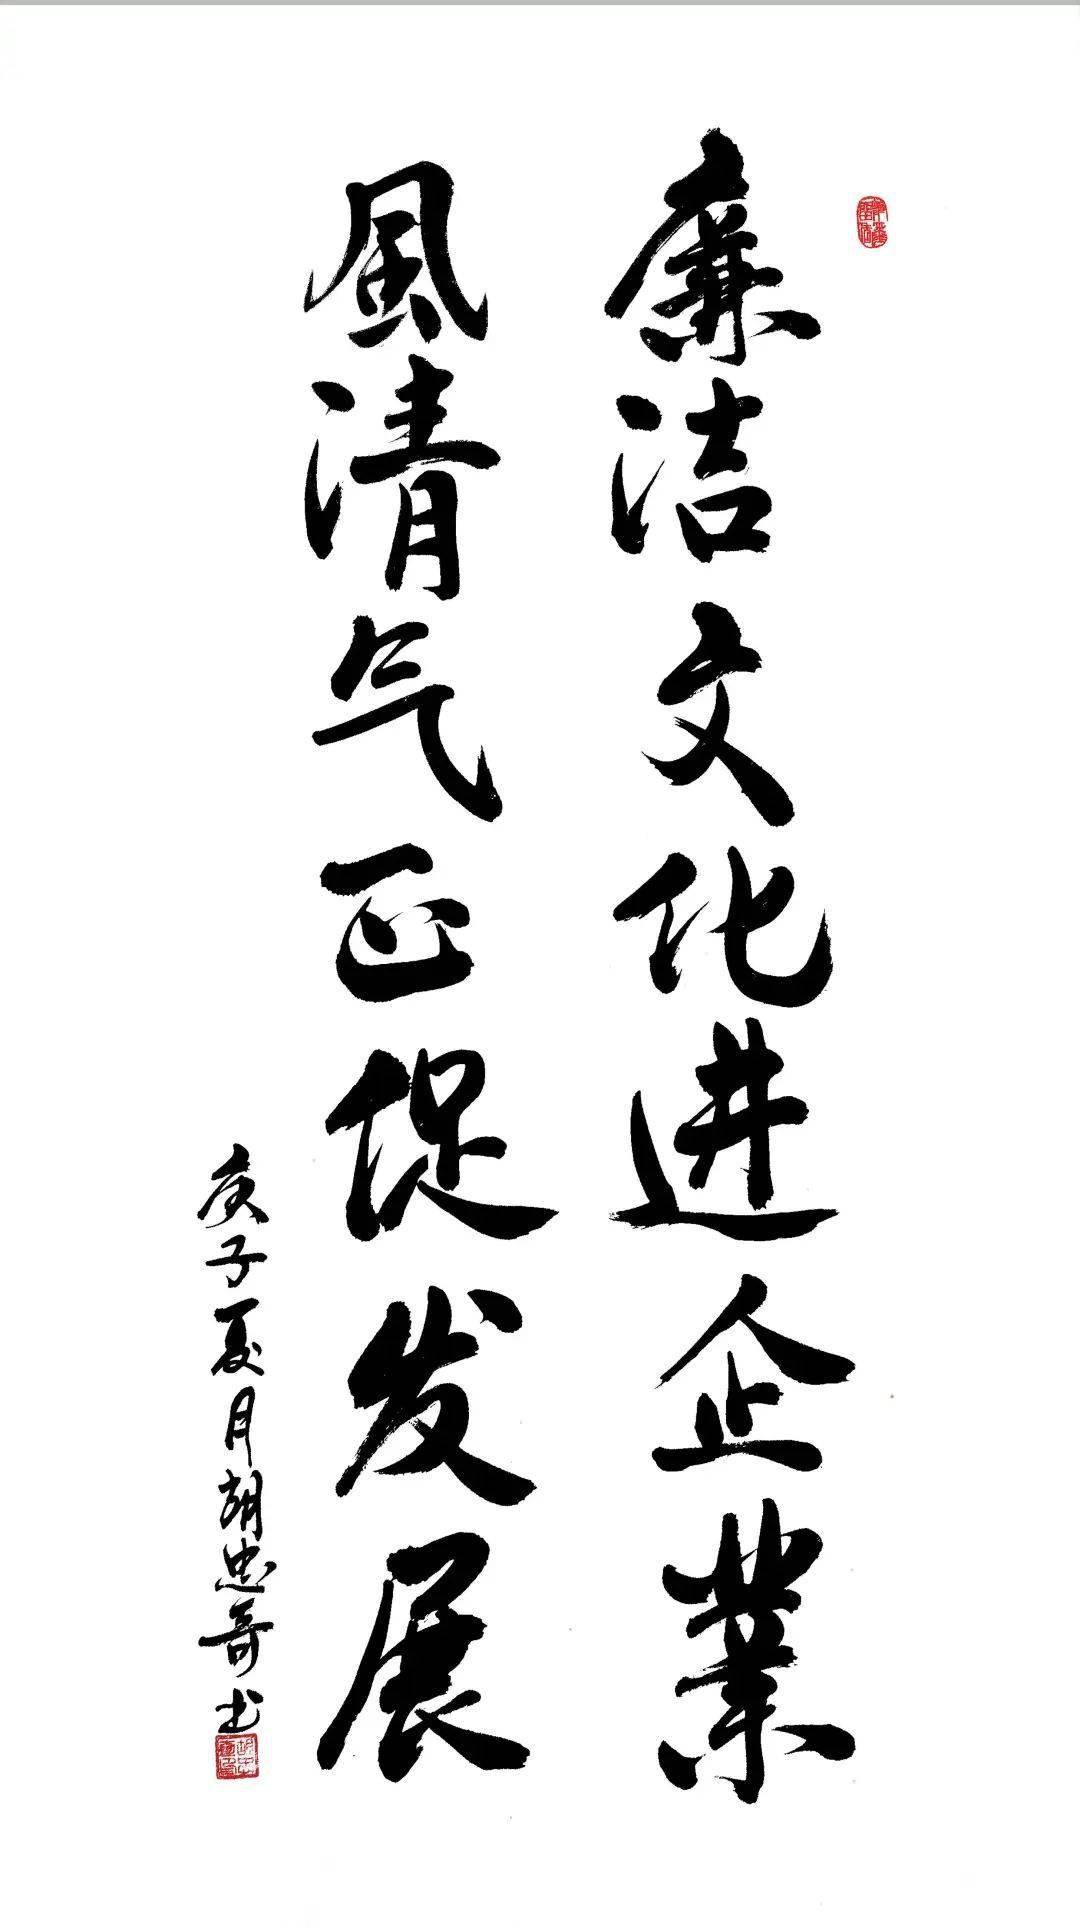 廉洁文化进企業
風清气正促发展
庚子夏月胡忠奇书